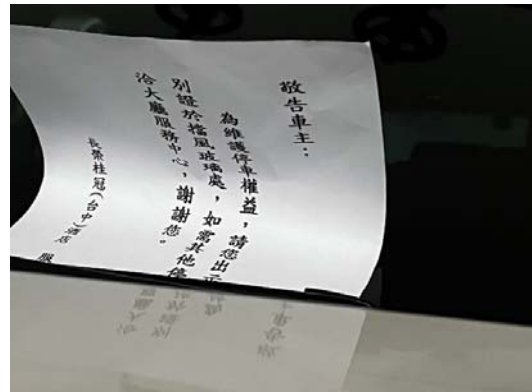 敬告車主：
為維護停車權益，請您出示
別證於擋風玻璃處，如需其他停
洽大廳服務中心，謝謝您。
長榮桂冠（台中）酒店 服